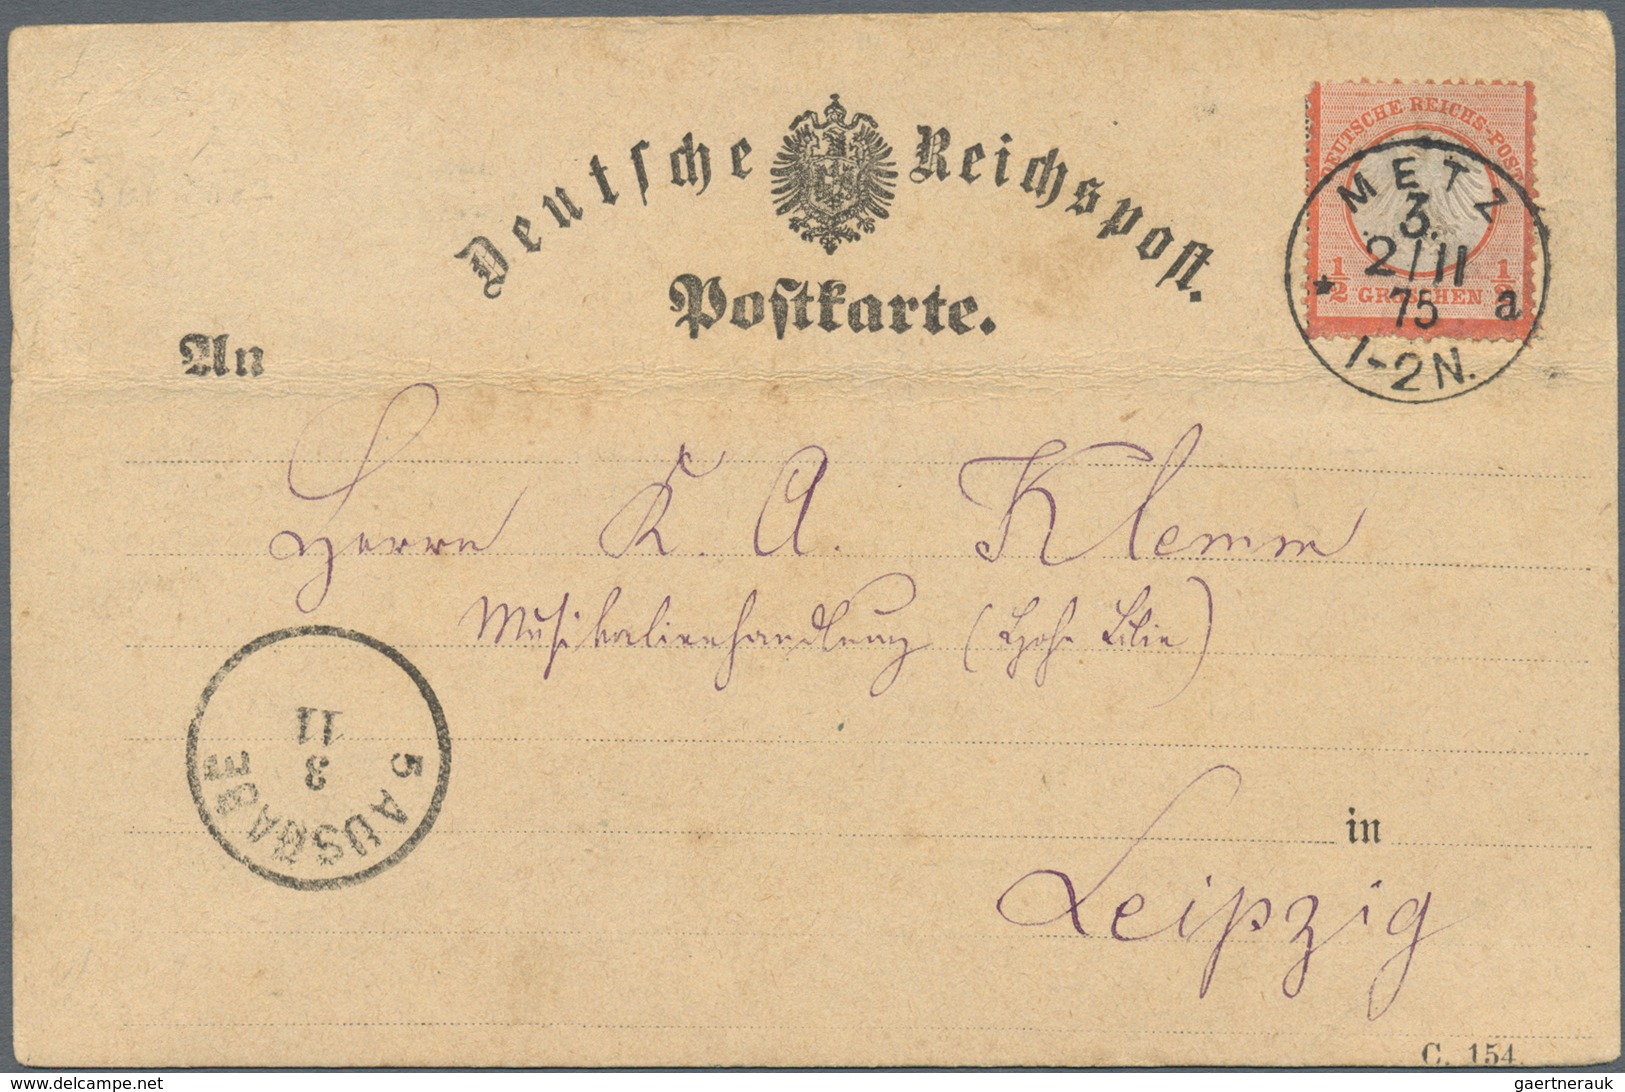 Deutsche Reichspost.
Postkarte.
DEUTSCHE REICHS-POST
1/2 GROSCHEN 1/2
METZ
3.
2/11
75
* a
1-2N.
An
Herrn K. A. Klemm
Musikalienhandlung (Hohe Lilie)
5 AUSGABE
3
11
in
Leipzig
C. 154.
gaertnerauk @ delcampe.net